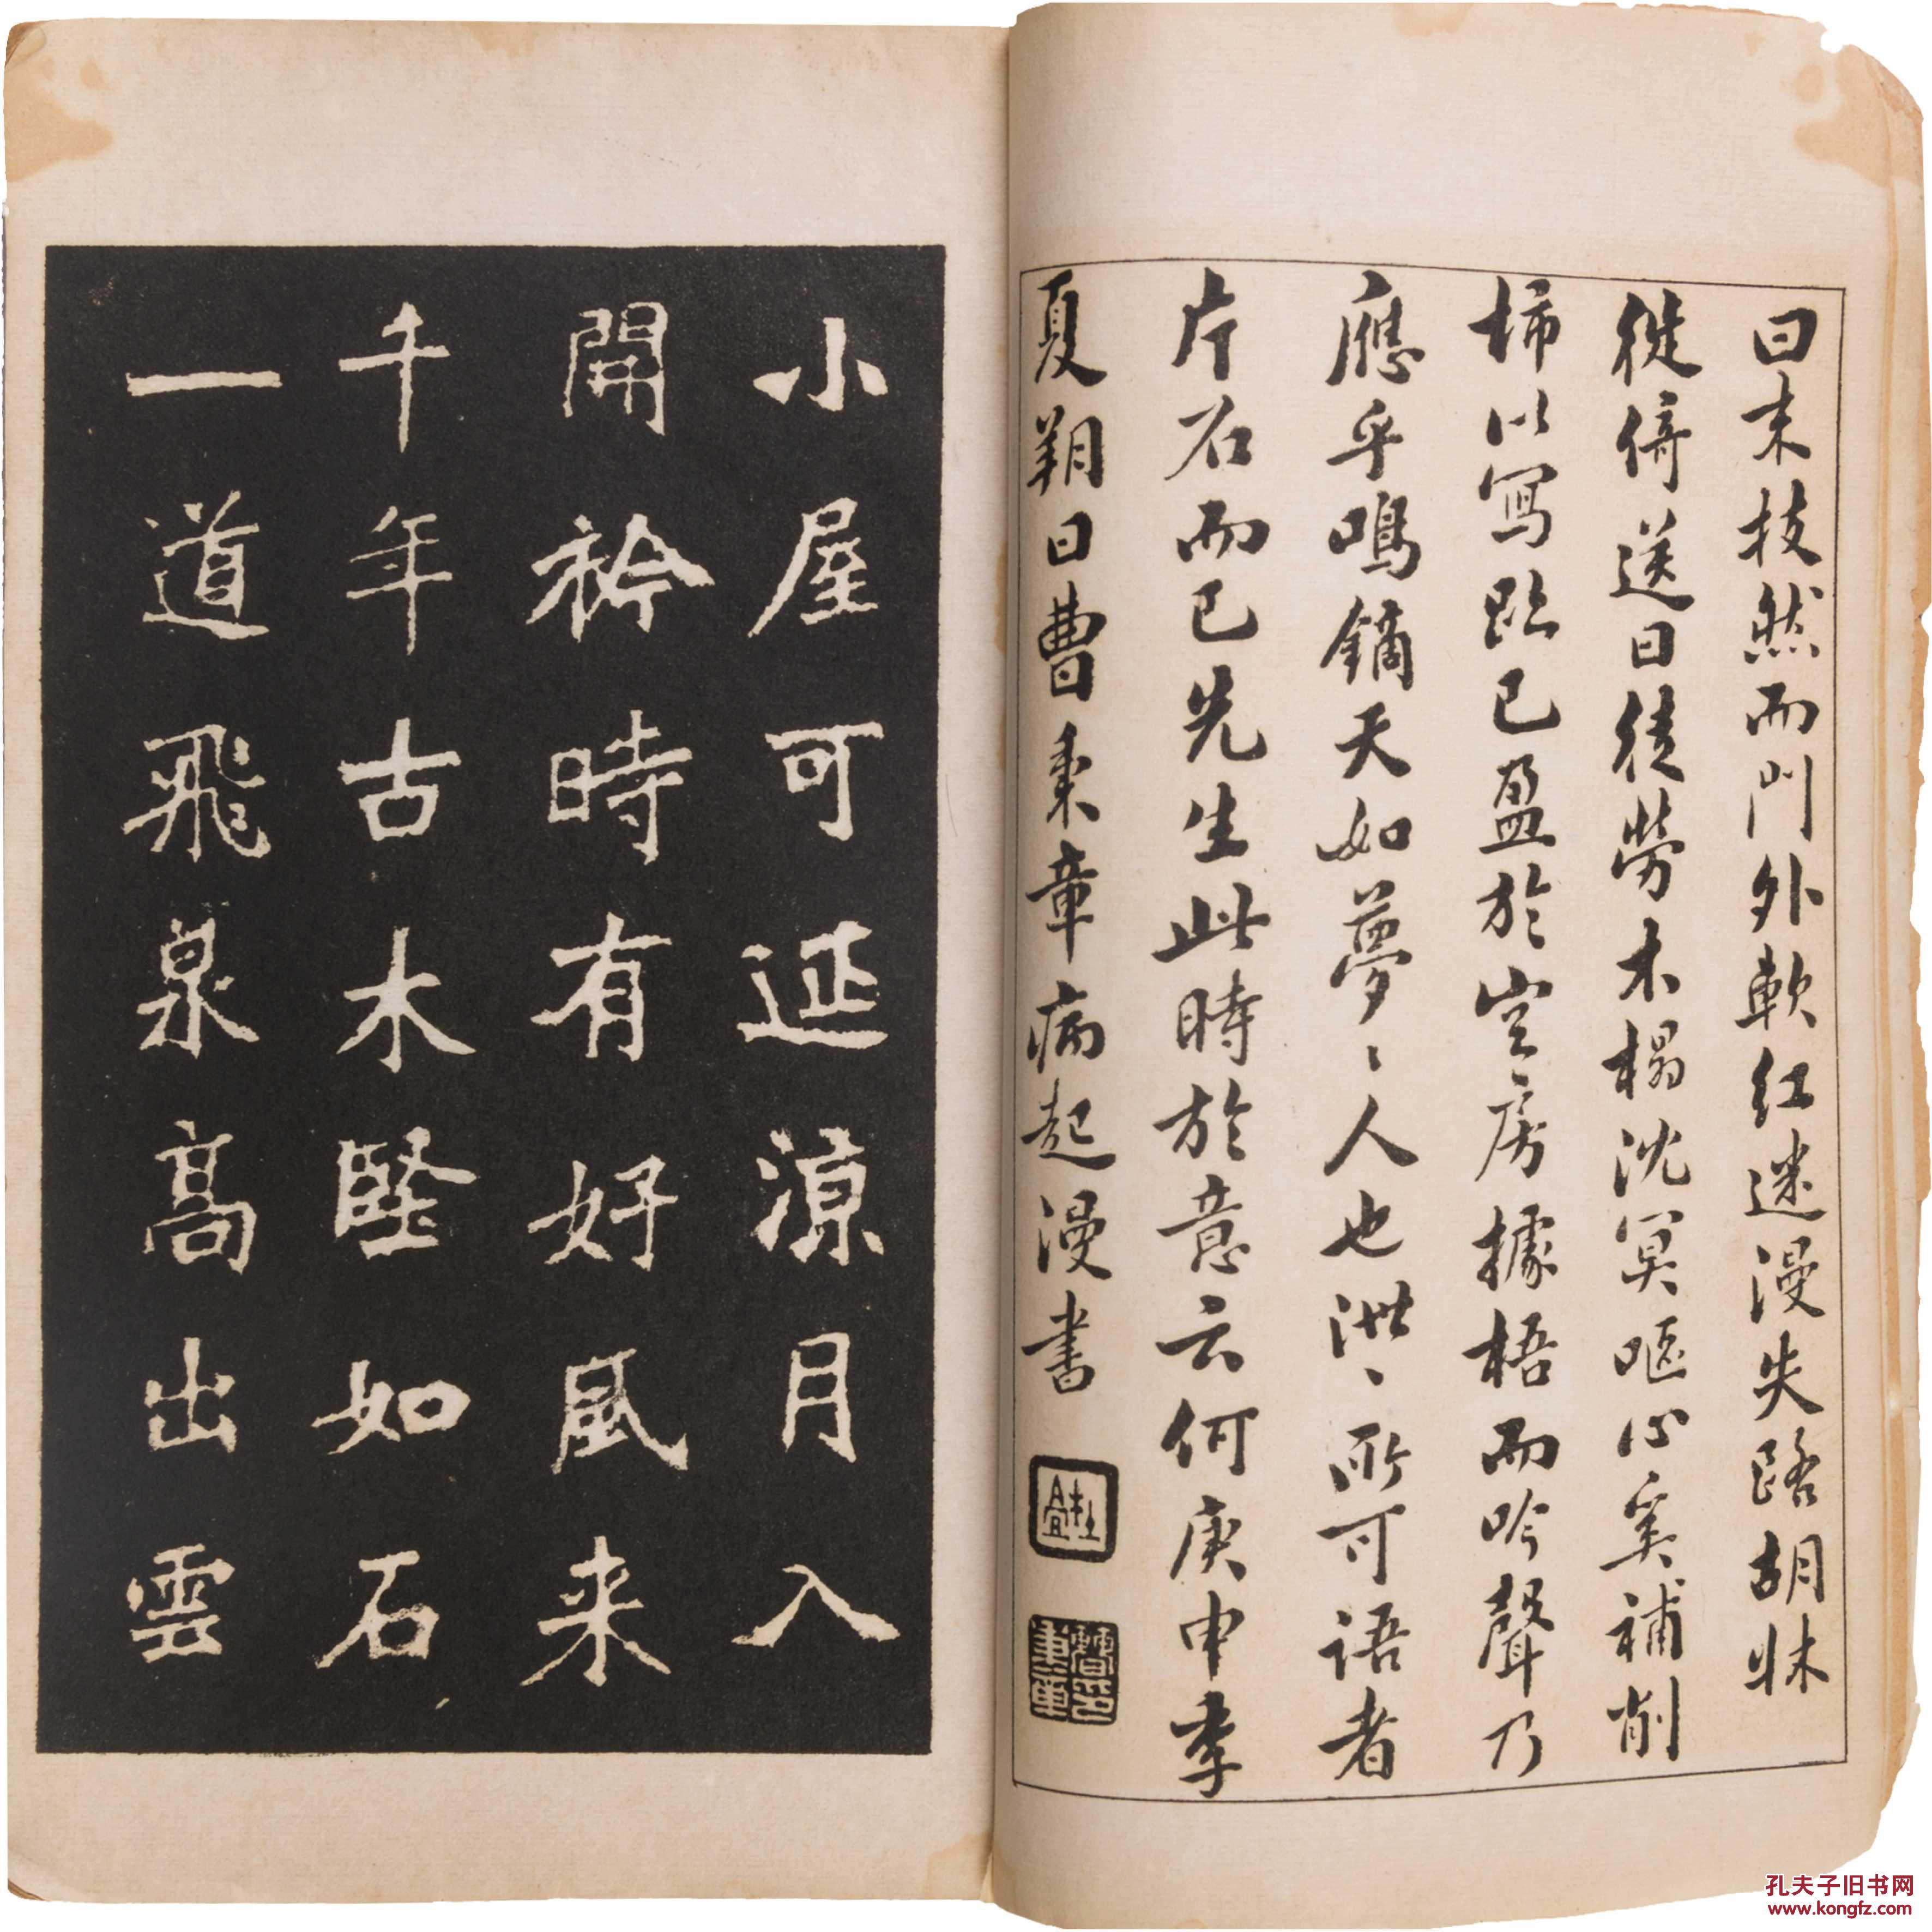 曰末技然而門外軟紅迷漫失路胡牀
徙倚送日徒勞木榻沈冥嘔心奚補削
㭒以寫跽已盈於空房據梧而吟聲乃
應乎鳴鏑天如夢〻人也泄〻所可語者
片石而已先生此時於意云何庚申季
夏朔日曹秉章病起漫書
小屋可延涼月入
開衿時有好風来
千年古木堅如石
一道飛泉高出雲
孔夫子旧书网
www.kongfz.com